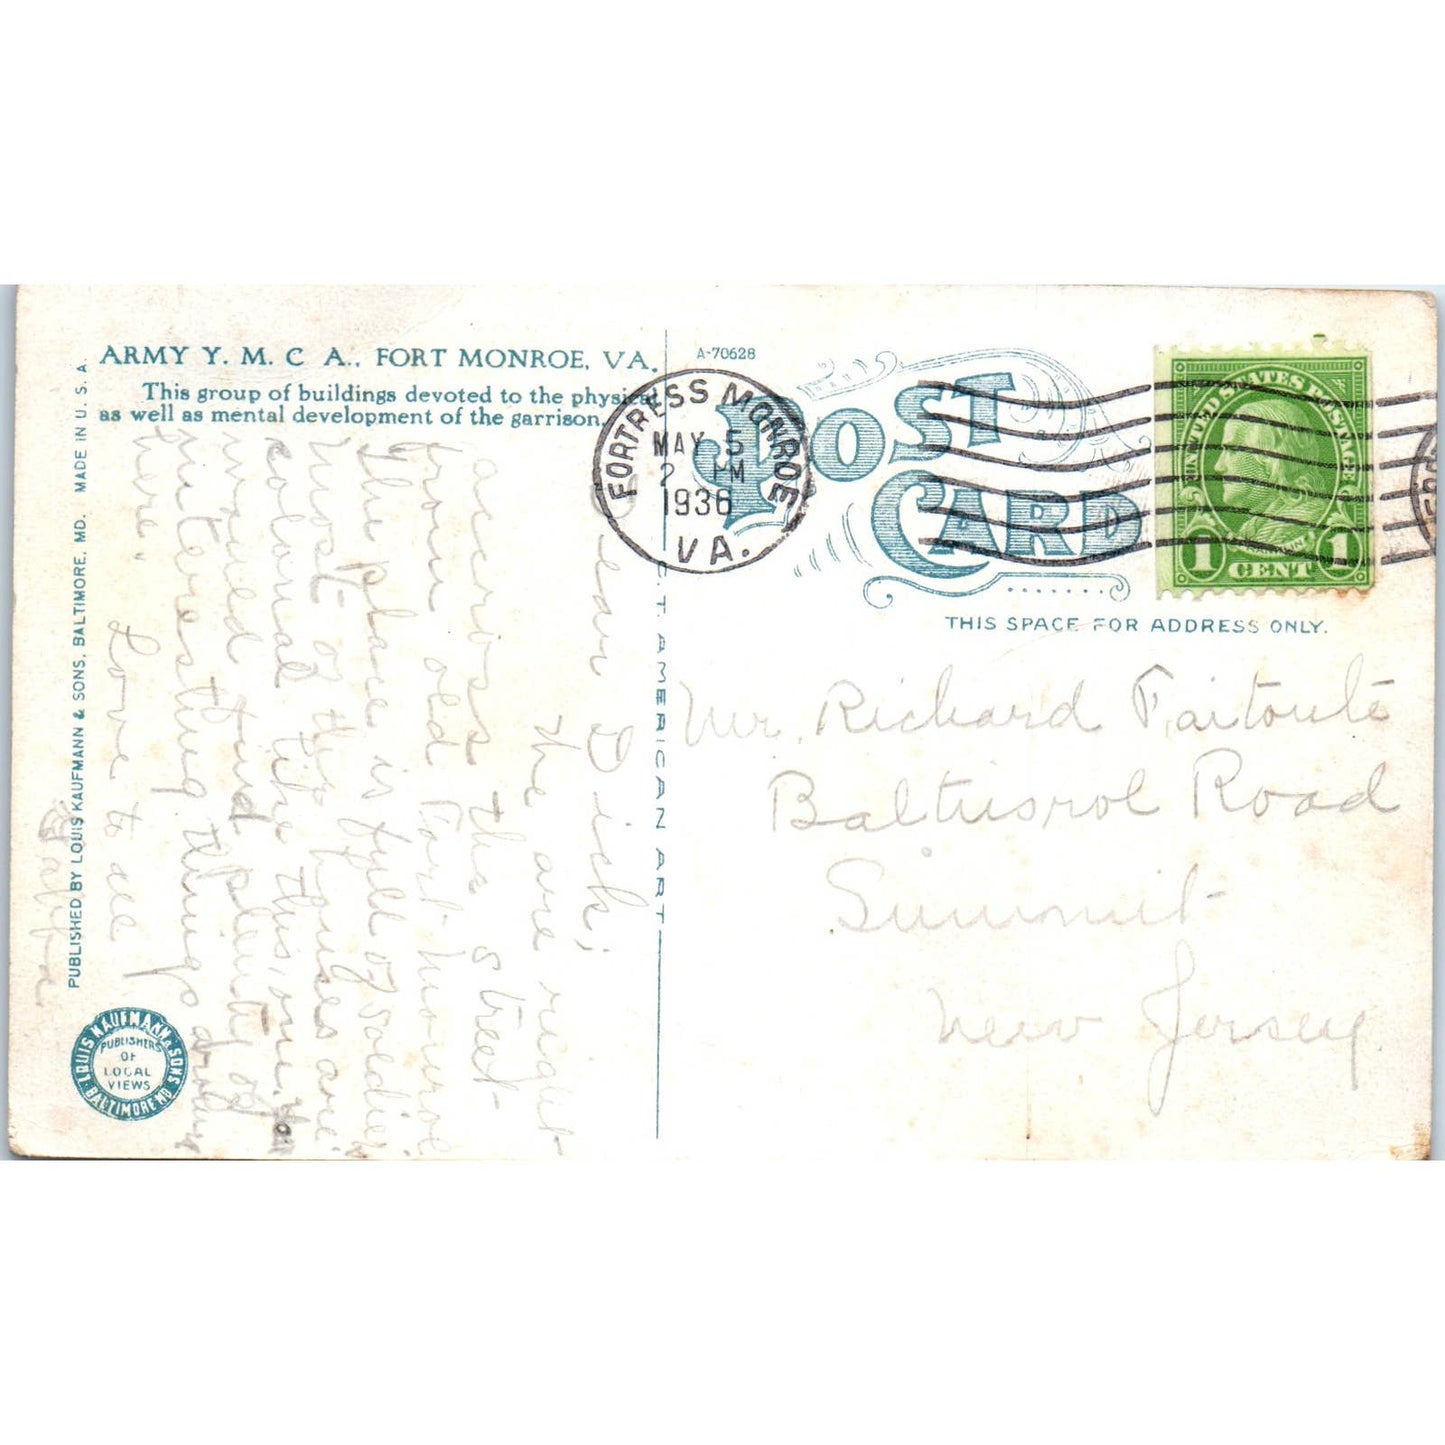 ARMY Y. M. C A., FORT MONROE, VA.
This group of buildings devoted to the physical
as well as mental development of the garrison.
PUBLISHED BY LOUIS KAUFMANN & SONS, BALTIMORE, MD. MADE IN U. S. A.
LOUIS KAUFMANN & SONS
BALTIMORE MD
PUBLISHERS
OF
LOCAL
VIEWS
Dear Dick;
We are right
accross the street
from old Fort Monroe
The place is full of soldiers
Most of the houses are
colonial like this one.
around and plenty of
interesting things
here.
Love to all
C. T. AMERICAN ART
A-70628
POST
CARD
FORTRESS MONROE
MAY 5
2 PM
1936
VA.
UNITED STATES POSTAGE
1 CENT 1
THIS SPACE FOR ADDRESS ONLY.
Mr. Richard Faitoute
Baltusrol Road
Summit
New Jersey